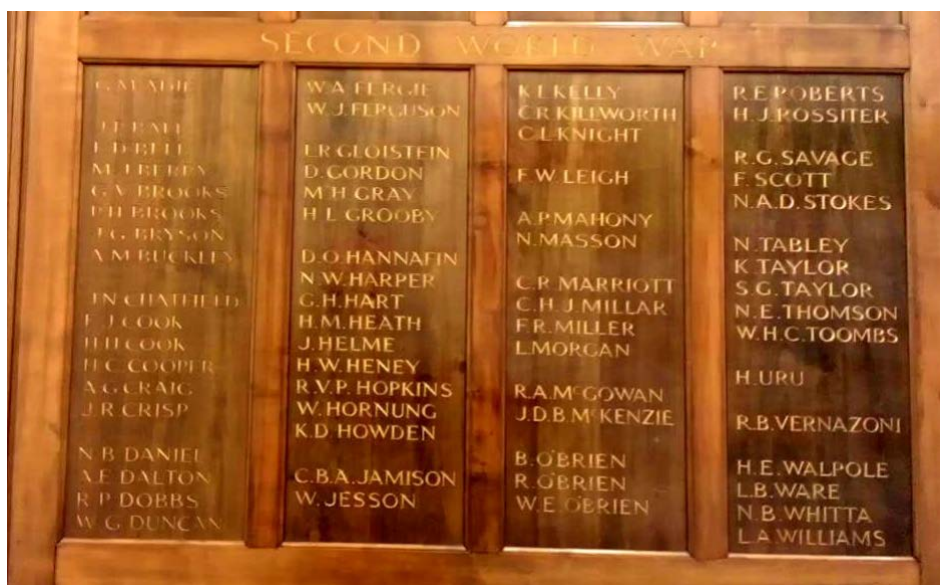 SECOND WORLD WAR
G. M. ADIE
J. P. BALL
E. D. BELL
M. J. BERRY
G. V. BROOKS
P. H. BROOKS
J. G. BRYSON
A. M. BUCKLEY
J. N. CHATFIELD
F. J. COOK
H. H. COOK
H. C. COOPER
A. G. CRAIG
J. R. CRISP
N. B. DANIEL
A. E. DALTON
R. P. DOBBS
W. G. DUNCAN
W. A. FERGIE
W. J. FERGUSON
I. R. GLOISTEIN
D. GORDON
M. H. GRAY
H. L. GROOBY
D. O. HANNAFIN
N. W. HARPER
G. H. HART
H. M. HEATH
J. HELME
H. W. HENEY
R. V. P. HOPKINS
W. HORNUNG
K. D. HOWDEN
C. B. A. JAMISON
W. JESSON
K. L. KELLY
C. R. KILLWORTH
C. L. KNIGHT
F. W. LEIGH
A. P. MAHONY
N. MASSON
C. R. MARRIOTT
C. H. J. MILLAR
F. R. MILLER
L. MORGAN
R. A. McGOWAN
J. D. B. McKENZIE
B. O'BRIEN
R. O'BRIEN
W. E. O'BRIEN
R. E. ROBERTS
H. J. ROSSITER
R. G. SAVAGE
F. SCOTT
N. A. D. STOKES
N. TABLEY
K. TAYLOR
S. G. TAYLOR
N. E. THOMSON
W. H. C. TOOMBS
H. URU
R. B. VERNAZONI
H. E. WALPOLE
L. B. WARE
N. B. WHITTA
L. A. WILLIAMS